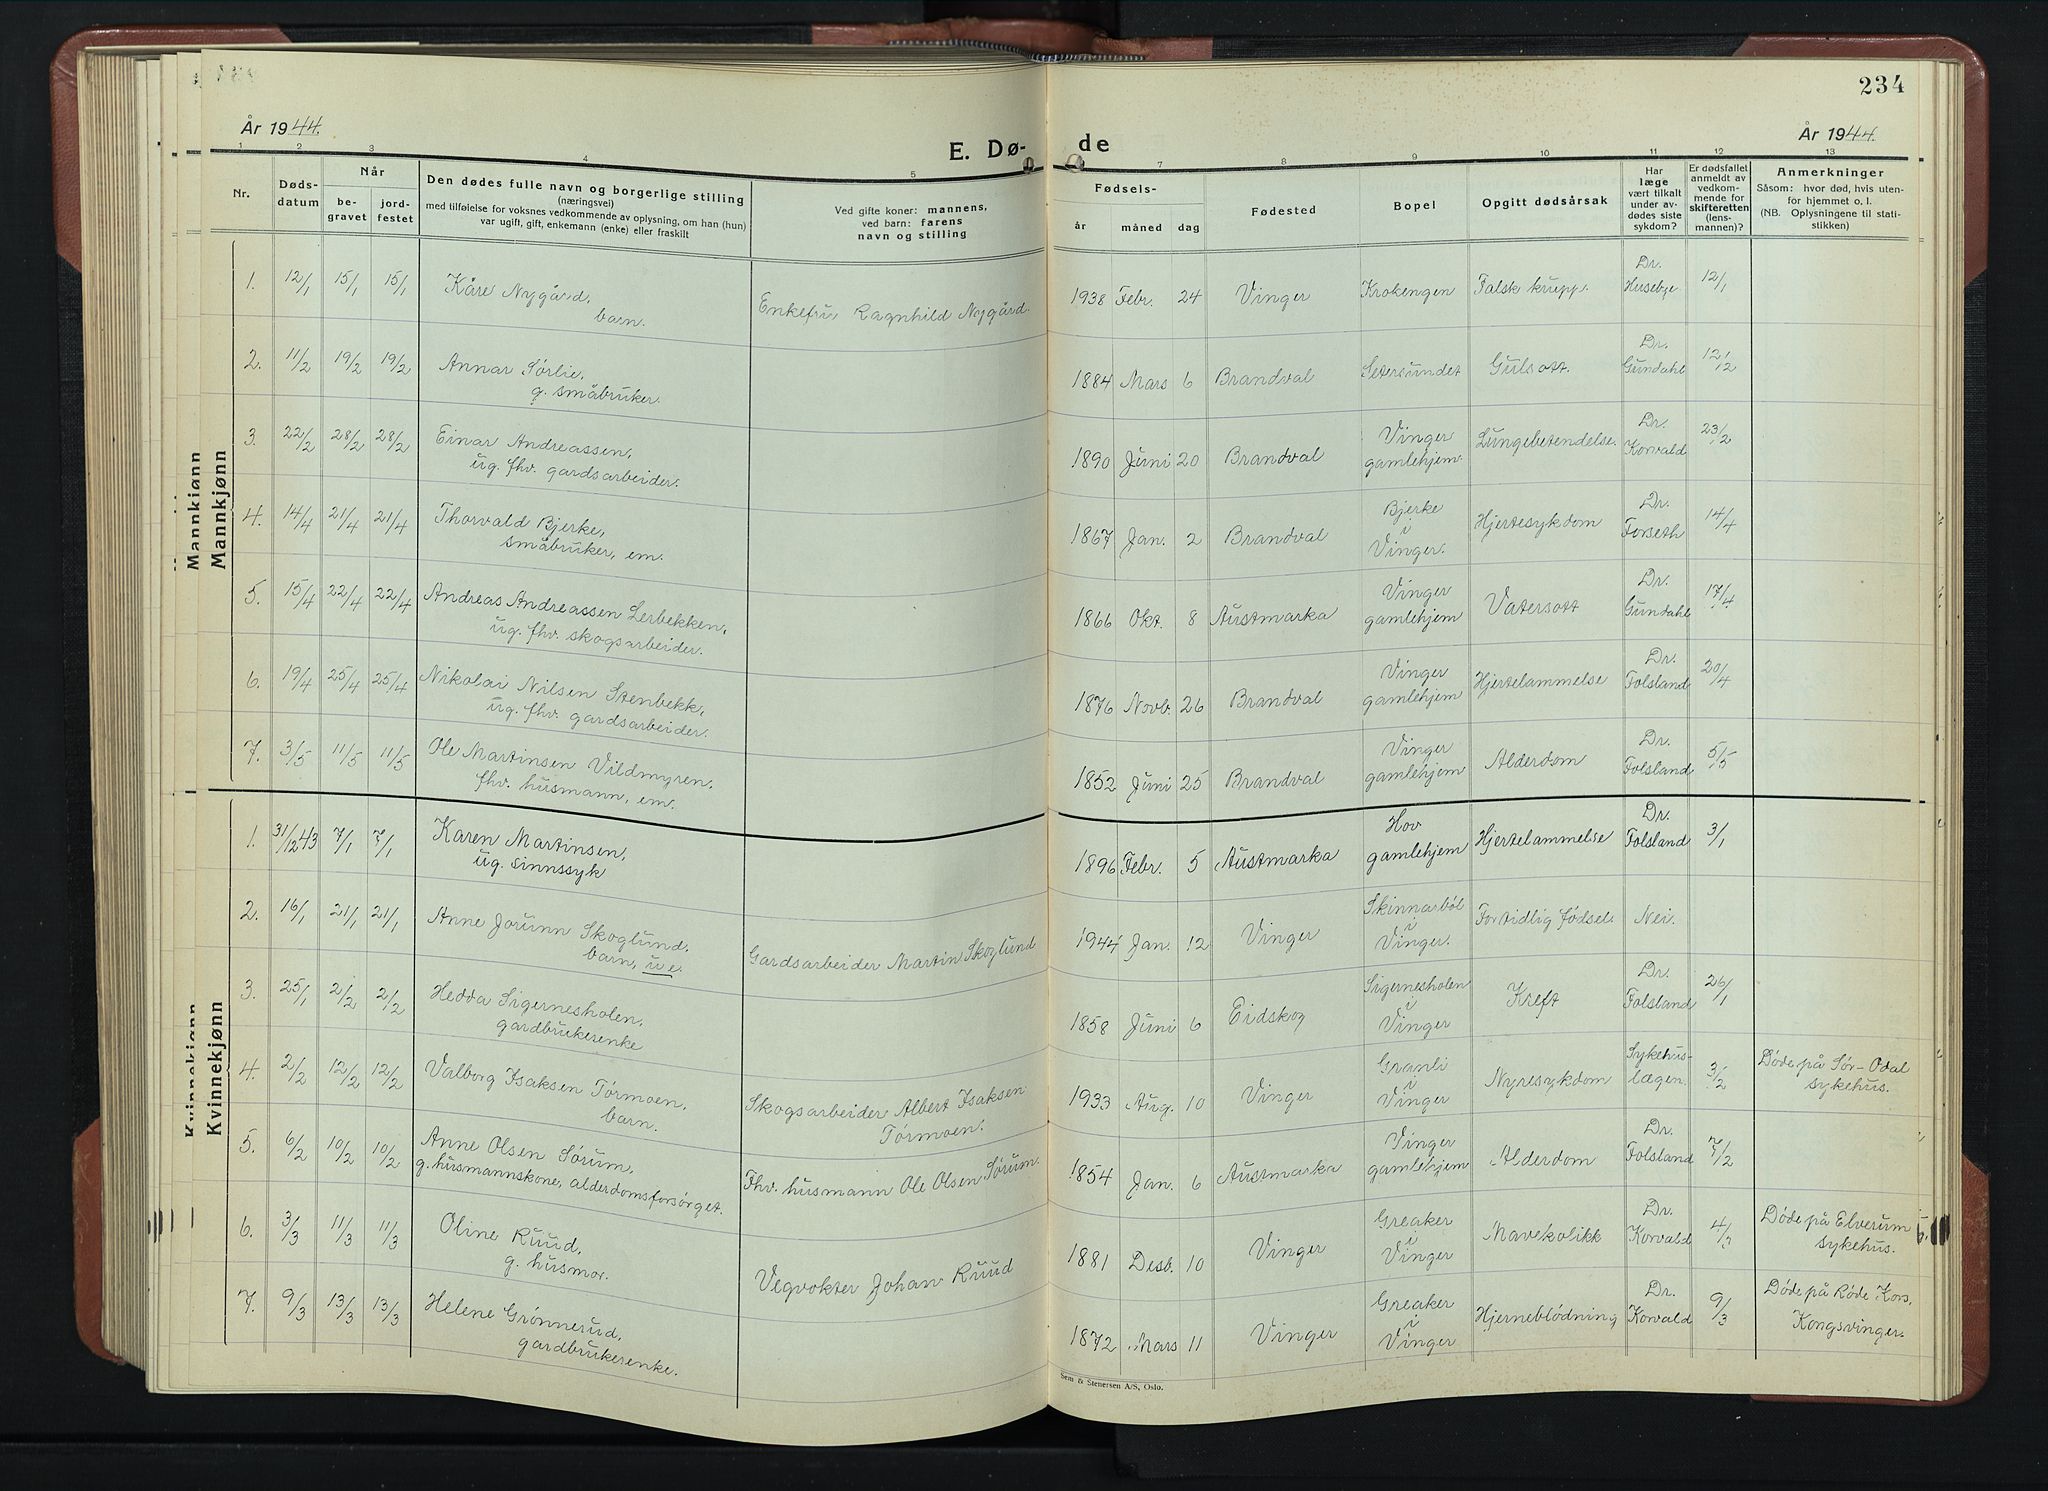 234
År 1944.
E. Dø-
de
År 1944.
1 2 3 4 5 7 8 9 10 11 12 13
Nr.
Døds-
datum
Når
be-
gravet
jord-
festet
Den dødes fulle navn og borgerlige stilling
(næringsvei)
med tilføielse for voksnes vedkommende av oplysning, om han (hun)
var ugift, gift, enkemann (enke) eller fraskilt
Ved gifte koner: mannens,
ved barn: farens
navn og stilling
Fødsels-
år måned dag
Fødested
Bopel
Opgitt dødsårsak
Har
læge
vært tilkalt
under av-
dødes siste
sykdom?
Er dødsfallet
anmeldt av
vedkom-
mende for
skifteretten
(lens-
mannen)?
Anmerkninger
Såsom: hvor død, hvis uten-
for hjemmet o. l.
(NB. Oplysningene til stati-
stikken)
Mannkjønn
Mannkjønn
1. 12/1 15/1 15/1 Kåre Nygård,
barn.
Enkefru Ragnhild Nygård.
1938 Febr. 24 Vinger Krokengen Falsk krupp. Dr.
Husebye 12/1
2. 11/2 19/2 19/2 Annar Sørlie,
g. småbruker.
1884 Mars 6 Brandval Setersundet Gulsott. Dr.
Gundahl 12/2
3. 22/2 28/2 28/2 Einar Andreassen,
ug. fhv. gardsarbeider.
1890 Juni 20 Brandval Vinger
gamlehjem. Lungebetendelse. Dr.
Korvald 23/2
4. 14/4 21/4 21/4 Thorvald Bjerke,
småbruker, em.
1867 Jan. 2 Brandval Bjerke
i
Vinger. Hjertesykdom Dr.
Forseth 14/4
5. 15/4 22/4 22/4 Andreas Andreassen Lerbekken,
ug. fhv. skogsarbeider.
1866 Okt. 8 Austmarka Vinger
gamlehjem Vatersott Dr.
Gundahl 17/4
6. 19/4 25/4 25/4 Nikolai Nilsen Stenbekk,
ug. fhv. gardsarbeider.
1876 Novb. 26 Brandval Vinger
gamlehjem Hjertelammelse Dr.
Folsland 20/4
7. 3/5 11/5 11/5 Ole Martinsen Vildmyren,
fhv. husmann, em.
1852 Juni 25 Brandval Vinger
gamlehjem Alderdom Dr.
Folsland 5/5
Kvinnekjønn
Kvinnekjønn
1. 31/12 43 7/1 7/1 Karen Martinsen,
ug. sinnssyk
1896 Febr. 5 Austmarka Hov
gamlehjem Hjertelammelse Dr.
Folsland 3/1
2. 16/1 21/1 21/1 Anne Jorunn Skoglund,
barn, u.e.
Gardsarbeider Martin Skoglund
1944 Jan. 12 Vinger Skinnarbøl
i
Vinger. Fortidlig fødsel. Nei.
3. 25/1 2/2 2/2 Hedda Sigernesholen,
gardbrukerenke
1858 Juni 6 Eidskog Sigernesholen
i
Vinger Kreft Dr.
Folsland 26/1
4. 2/2 12/2 12/2 Valborg Isaksen Tørmoen,
barn.
Skogsarbeider Albert Isaksen
Tørmoen.
1933 Aug. 10 Vinger Granli
i
Vinger Nyresykdom Sykehus-
lægen. 3/2 Døde på Sør-Odal
sykehus.
5. 6/2 10/2 10/2 Anne Olsen Sørum,
g. husmannskone, alderdomsforsørget.
Fhv. husmann Ole Olsen Sørum.
1854 Jan. 6 Austmarka Vinger
gamlehjem Alderdom Dr.
Folsland 7/2
6. 3/3 11/3 11/3 Oline Ruud,
g. husmor.
Vegvokter Johan Ruud
1881 Desb. 10 Vinger Greaker
i
Vinger Mavekolikk Dr.
Korvald 4/3 Døde på Elverum
sykehus.
7. 9/3 13/3 13/3 Helene Grønnerud,
gardbrukerenke.
1872 Mars 11 Vinger Greaker
i
Vinger Hjerneblødning Dr.
Korvald 9/3 Døde på Røde Kors,
Kongsvinger.
Sem & Stenersen A/S, Oslo.